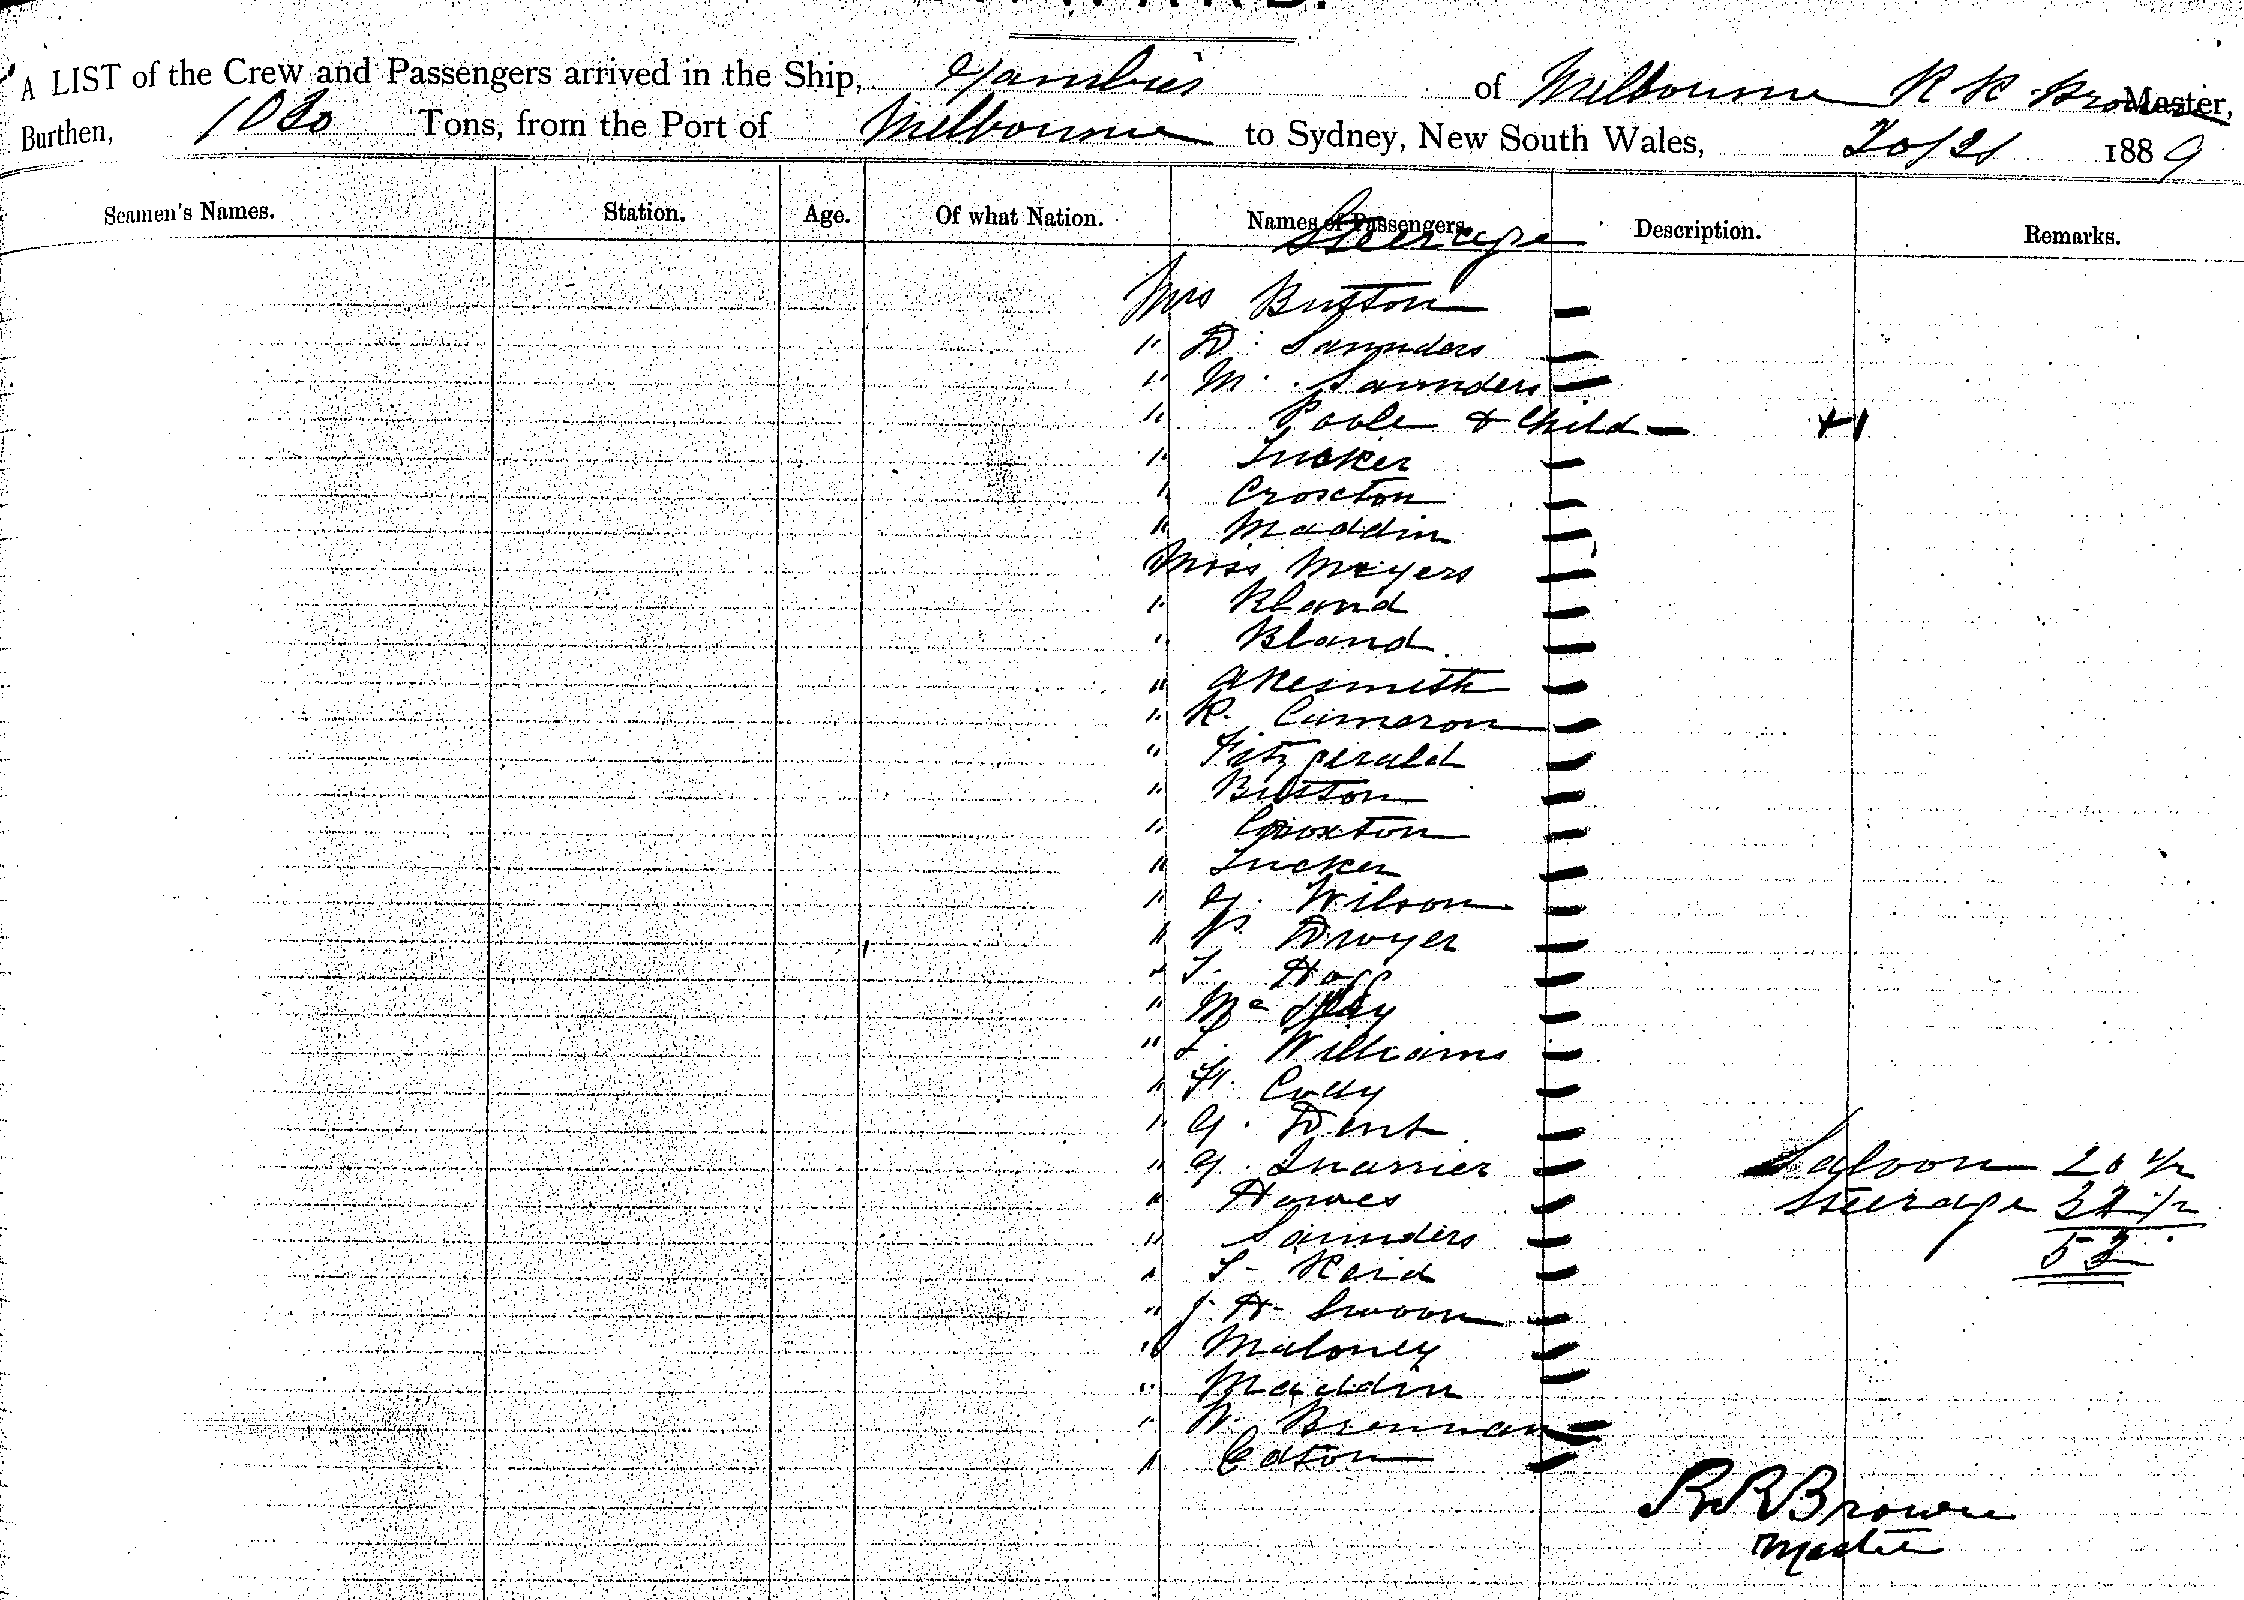 A LIST of the Crew and Passengers arrived in the Ship, Gambier of Melbourne R R Brown Master,
Burthen, Tons, from the Port of Melbourne to Sydney, New South Wales, 1889
Seamen's Names. Station. Age. Of what Nation. Names of Passengers. Description. Remarks.
Steerage
Mrs Button
" D. Saunders
" M. Saunders
" Poole & Child +1
" Tucker
" Croxton
" Maddin
Miss Meyers
" Bland
" Bland
" Akesmith
" R. Cameron
" Fitzgerald
" Button
" Croxton
" Tucker
" G. Wilson
" P. Dwyer
" T. Hoff
" Mc
" L. Williams
" H. Cody
" G. Dent
" G. Quarrier
" Howes
" Saunders
" T. Reid
" J. H. Swoon
" Maloney
" Maddin
" W. Brennan
" Eaton
Saloon 20 1/2
Steerage 32 1/2
53
R R Brown
Master